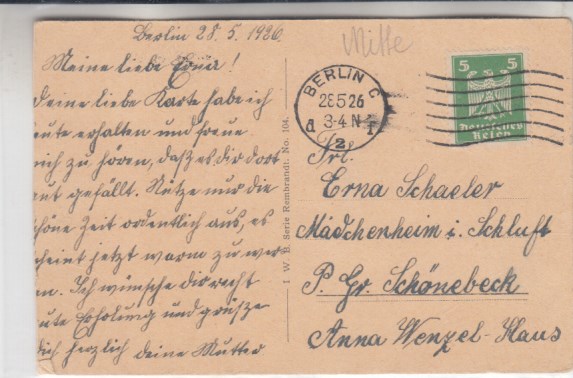 Berlin 28.5.1926.
Meine liebe Erna!
Deine liebe Karte habe ich
eute erhalten und freue
ich zu hören, daß es dir dort
ut gefällt. Nütze nur die
höne Zeit ordentlich aus, es
cheint jetzt warm zu wer-
en. Ich wünsche dir recht
ute Erholung und grüße
dich herzlich deine Mutter
I. W. B. Serie Rembrandt. No. 104.
Mitte
BERLIN C
28526
3-4 N
2
5 5
Deutsches
Reich
Frl.
Erna Schaeler
Mädchenheim i. Schluft
P. Gr. Schönebeck
Anna Wenzel-Haus